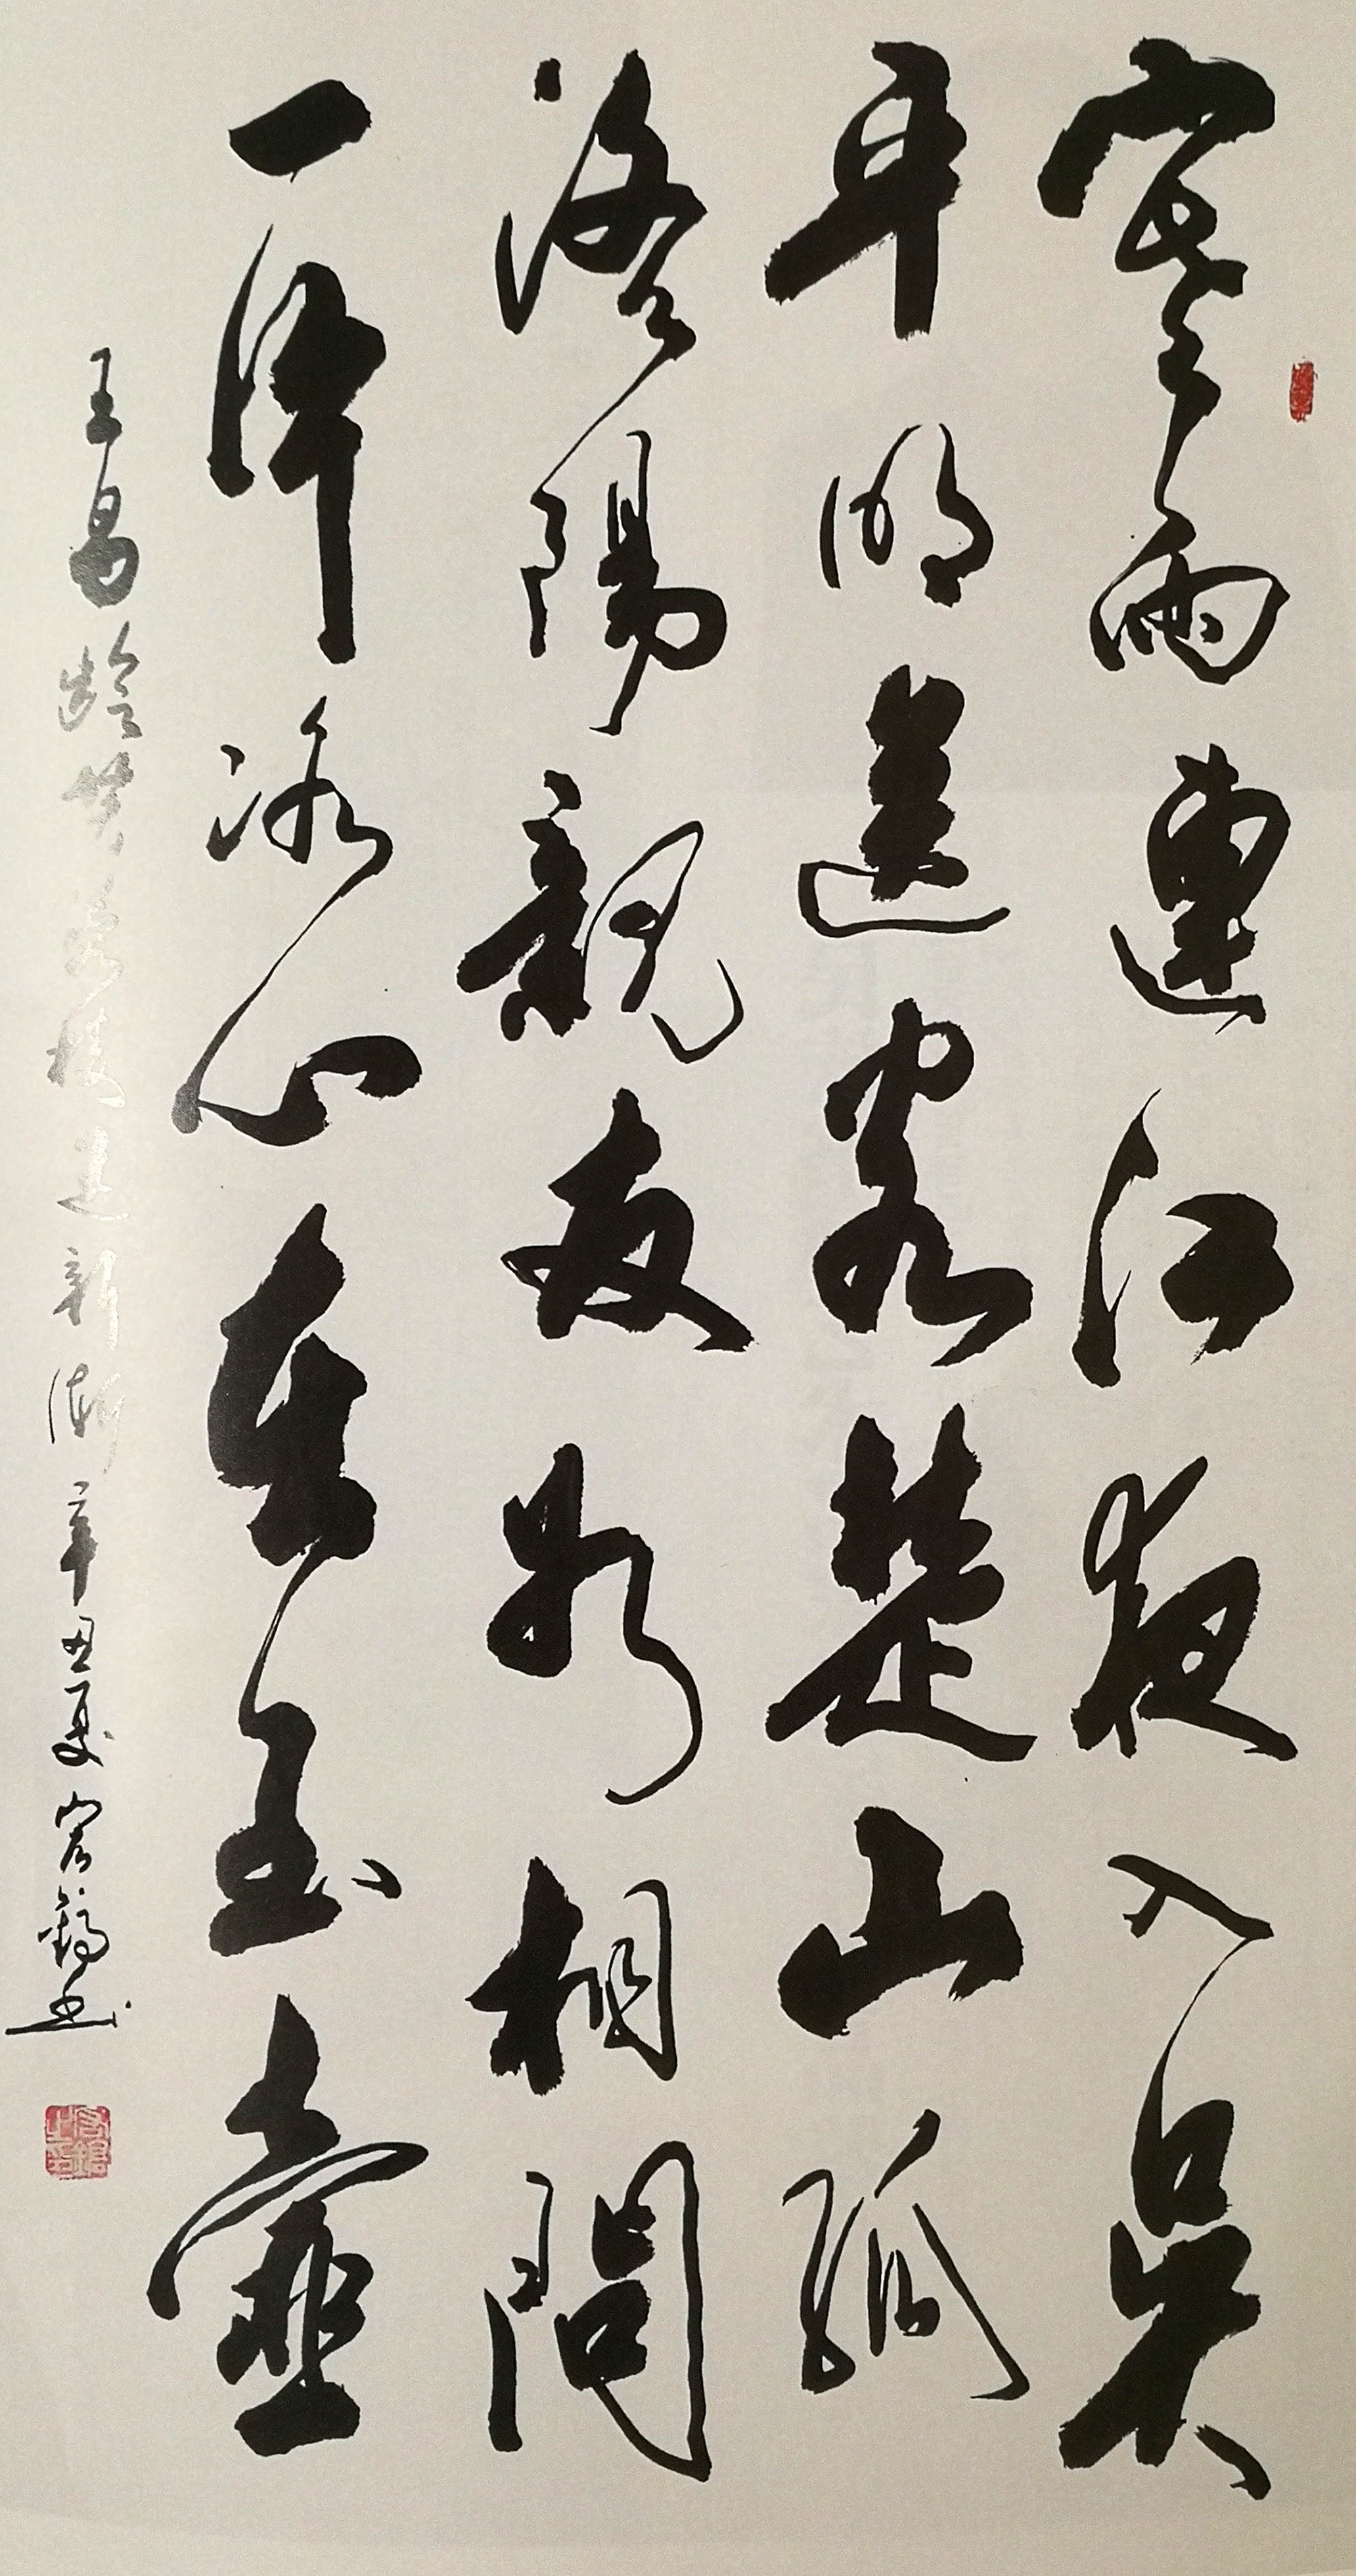 寒雨連江夜入吳
平明送客楚山孤
洛陽親友如相問
一片冰心在玉壺
王昌齡芙蓉樓送新漸 辛丑夏 書